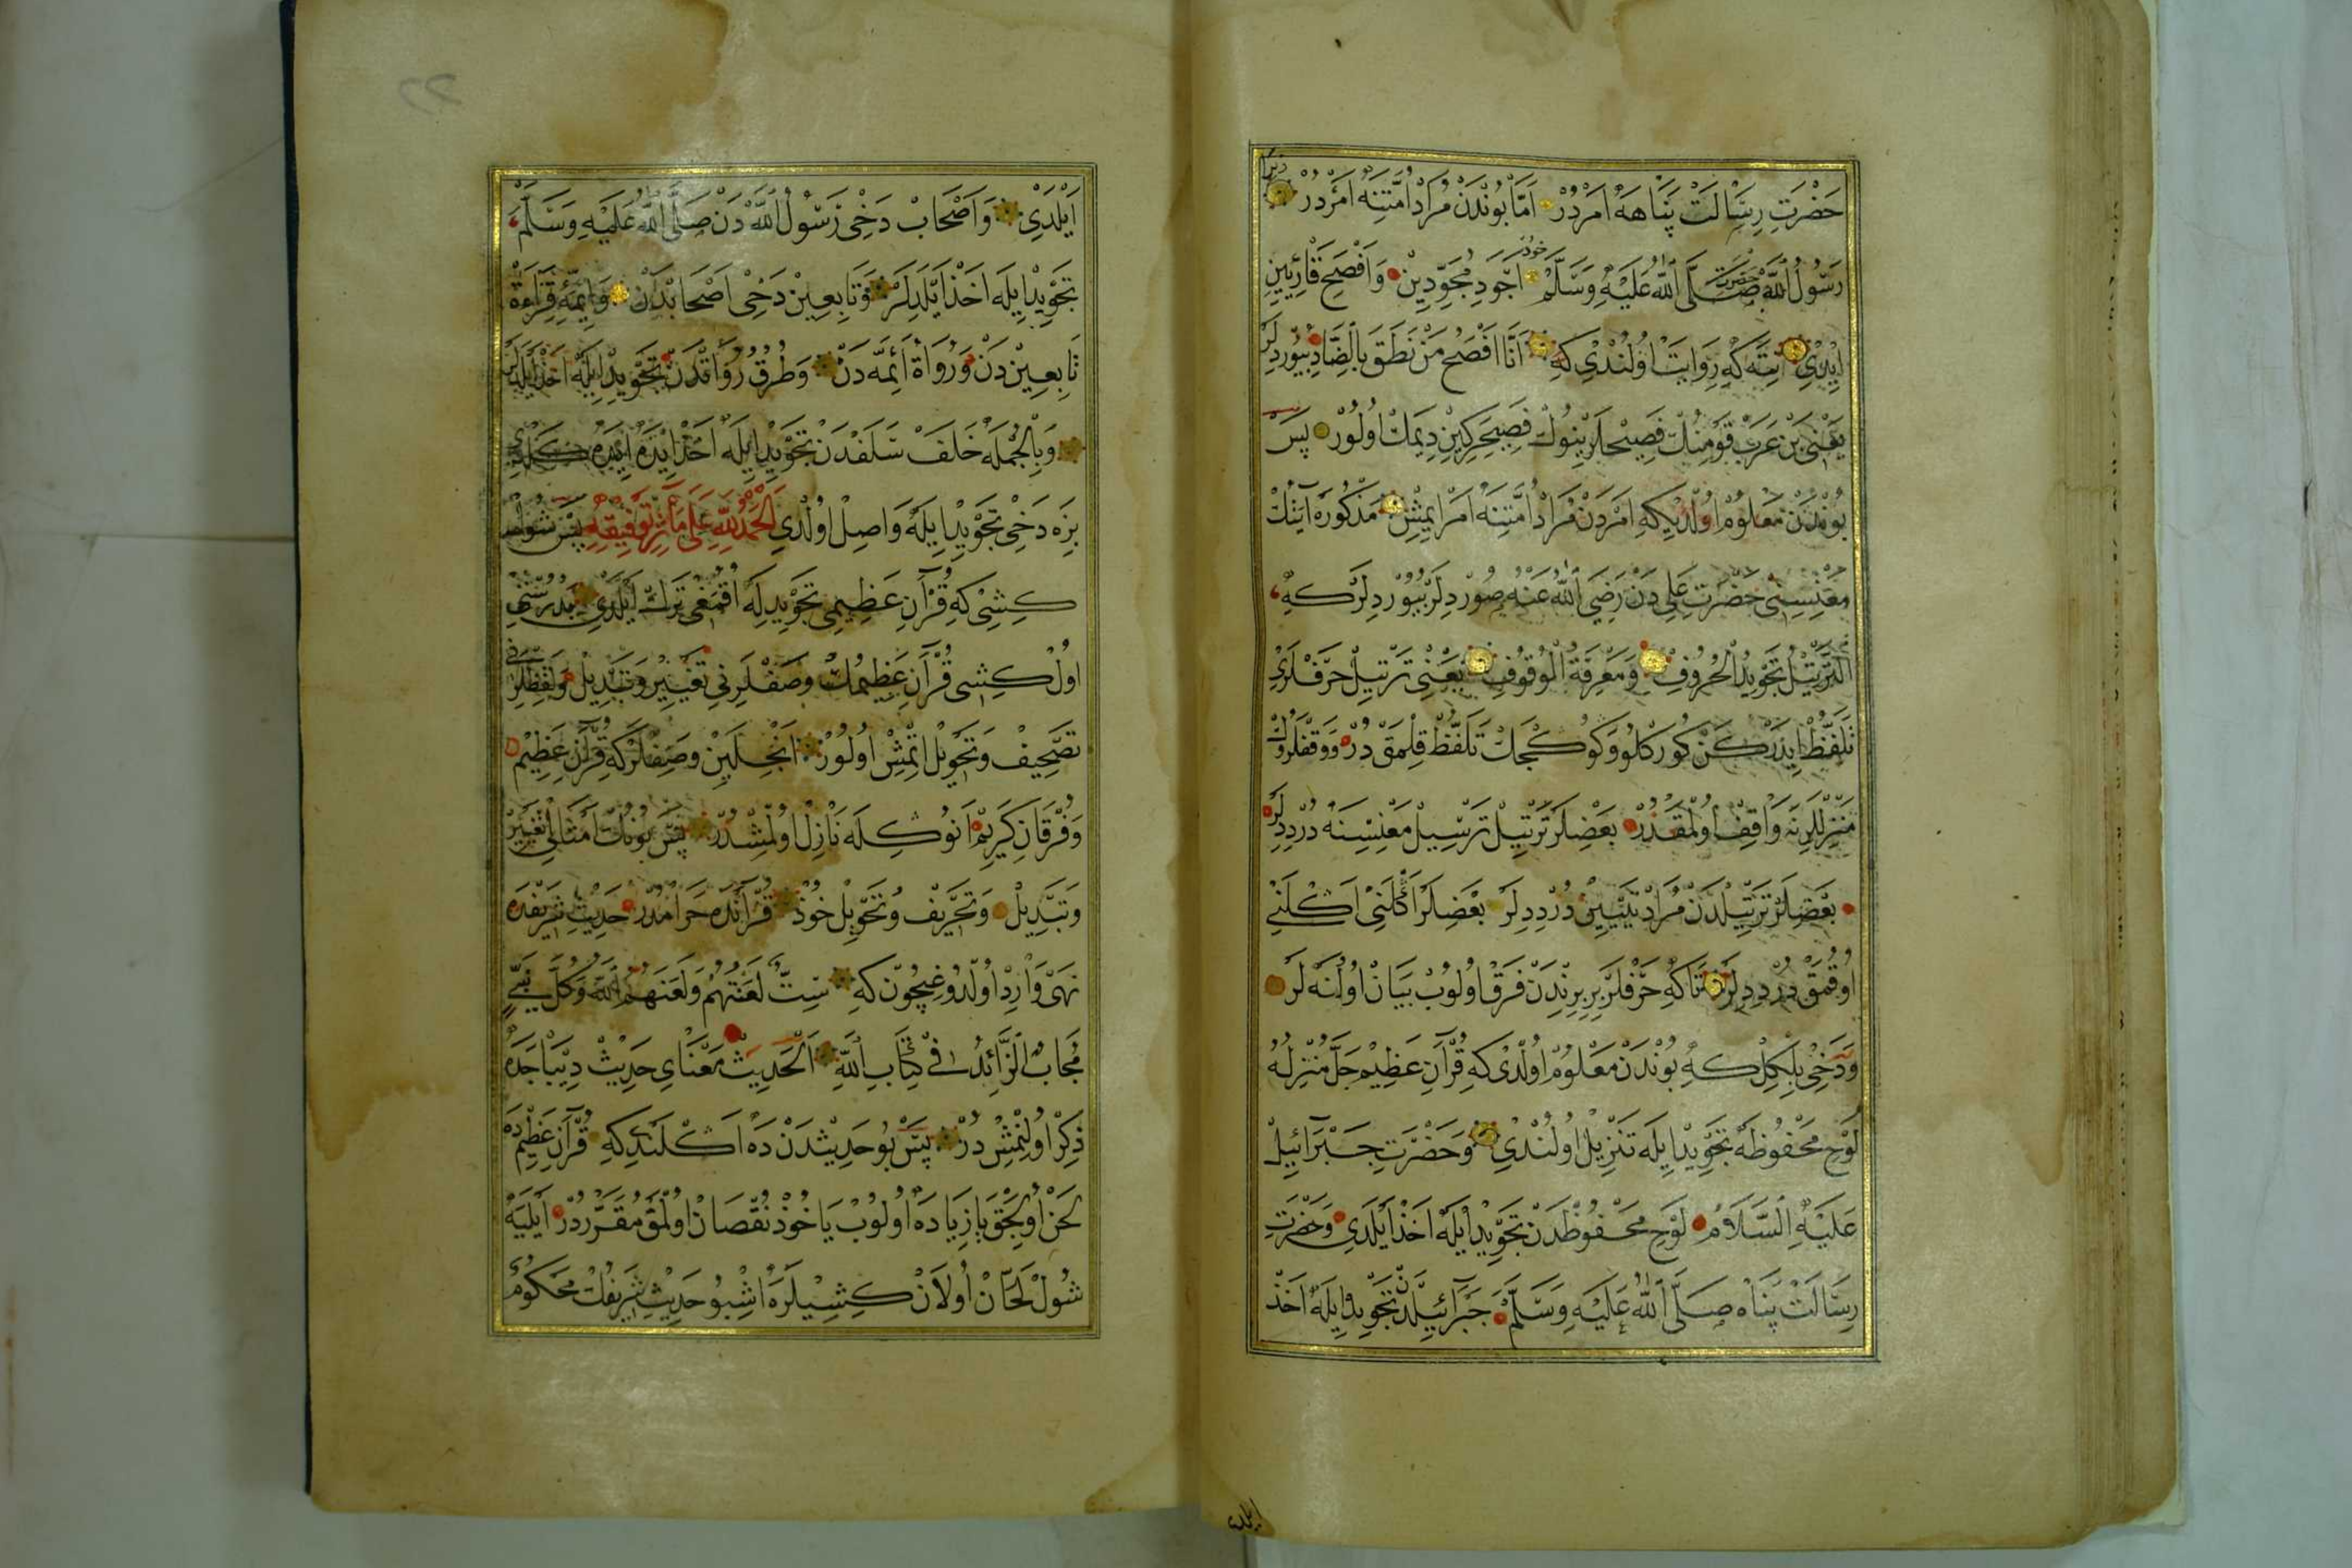 حَضْرَتِ رِسَالَتْ پَنَاهَهُ اَمَرْدُرْ اَمَّا بُونْدَنْ مُرَادْ اُمَّتِنَهُ اَمَرْدُرْ زيرا
رَسُولُ اللّٰه حضرت صَلَّى اللّٰهُ عَلَيْهِ وَسَلَّمْ خود اَجْوَدِ مُجَوِّدِينْ وَاَفْصَحِ قَارِئِينْ
ايدى نته كه رِوَايَتْ اُولُنْدِى كِه اَنَا اَفْصَحُ مَنْ نَطَقَ بِالضَّادِ بيوردلر
يَعْنِى بَنْ عَرَبْ قَوْمِنُكْ فَصِيحْلَرِينُوكْ فَصِيحَرَكِيِنْ دِيمَكْ اُولُورْ پَسْ
بُونْدَنْ مَعْلُومْ اُولْدِيكِه اَمَرْدَنْ مُرَادْ اُمَّتِنَهْ اَمْرْ ايمِشْ مَذْكُورَهْ آيَتِكْ
مَعْنِسِنِى حَضْرَتِ عَلِى دَنْ رَضِيَ اللّٰهُ عَنْهُ صُورْدِلَرْ بُيُورْدِلَرْ كِه
اَلتَّرْتِيلُ تَجْوِيدُ الْحُرُوفْ وَمَعْرِفَةُ الْوُقُوفِ يَعْنِى تَرْتِيلْ حَرْفْلَرِى
تَلَفُّظْ ايدَرْكَنْ كُورْكْلُو وَكُوكْجَكْ تَلَفُّظْ قِلْمَقْ دُرْ وَوَقْفْلَرُوكْ
مَنْزِلْلَرِنَه وَاقِفْ اُولْمَقْدُرْ بَعْضِلَرْ تَرْتِيلْ تَرْسِيلْ مَعْنِسِنَهْ دُرْ دِدِلَرْ
بَعْضِلَرْ تَرْتِيلْدَنْ مُرَادْ تَبْيِينْ دُرْ دِدِلَرْ بَعْضِلَرْ اَكْلَنِى اَكْلَنِى
اُوقُمَقْ دُرْ دِدِلَرْ تَاكِه حَرْفْلَرْ بِرْبِرِنْدَنْ فَرْقْ اُولُوبْ بَيَانْ اُولُنَهْ لَرْ
وَدَخِى بِلْكِلْ كِه بُونْدَنْ مَعْلُومْ اُولْدِى كِه قُرْآنِ عَظِيمْ جَلَّ مُنْزِلُهُ
لَوْحِ مَحْفُوظَهْ تَجْوِيدْ ايلَه تَنْزِيلْ اُولُنْدِى وَحَضْرَتِ جَبْرَائِيلْ
عَلَيْهِ السَّلَامْ لَوْحِ مَحْفُوظْدَنْ تَجْوِيدْ ايلَه اَخَذْ اَيْلَدِى وَحَضْرَتِ
رِسَالَتْ پَنَاه صَلَّى اللّٰهُ عَلَيْهِ وَسَلَّمْ جَبْرَآئِيلْدَنْ تَجْوِيدْ ايلَه اَخَذْ
ايلدى
اَيْلَدِى وَاَصْحَابْ دَخِى رَسُولُ اللّٰه دَنْ صَلَّى اللّٰهُ عَلَيْهِ وَسَلَّمْ
تَجْوِيدْ ايلَه اَخَذْ اَيْلَدِلَرْ وَتَابِعِينْ دَخِى اَصْحَابْدَنْ وَائِمَّهءِ قِرَاءَةْ
تَابِعِينْ دَنْ وَرُوَاةْ اَئِمَّه دَنْ وَطُرُقْ رُوَاتْدَنْ تَجْوِيدْ ايلَه اَخَذْ ايليه لر
وَبِالْجُمْلَه خَلَفْ سَلَفْدَنْ تَجْوِيدْ ايلَه اَخَذْ ايدَه ايدَه كَلْدِى
بِزَه دَخِى تَجْوِيدْ ايلَه وَاصِلْ اُولْدِى اَلْحَمْدُ لِلّٰهِ عَلَى تَوْفِيقِهِ پَسْ شُولْ
كِشِى كِه قُرْآنِ عَظِيمِى تَجْوِيدِلَه اُقُمَغِى تَرْكْ اَيْلَدِى
اُولْ كِشِى قُرْآنِ عَظِيمُكْ وَصَفْلَرِنِى تَغْيِيرْ وَتَبْدِيلْ وَلَفْظْلَرِنِى
تَصْحِيفْ وَتَحْوِيلْ اتْمِشْ اُولُورْ انْجِلَيِنْ وَصِفْلَرْكِه قُرْآنِ عَظِيمْ
وَفُرْقَانِ كَرِيمْ اَنُوكِلَه نَازِلْ اُولْمِشْدُرْ پَسْ بُونُكْ اَمْثَالِى تَغْيِيرْ
وَتَبْدِيلْ وَتَحْرِيفْ وَتَحْوِيلْ خُوذْ قُرْآنْدَه حَرَامْدُرْ حَدِيثِ شَرِيفْدَه
نَهْى وَارِدْ اُولْدُوغِيچُونْ كِه سِتَّةٌ لَعَنْتُهُمْ وَلَعَنَهُمُ اللّٰهُ وَكُلُّ نَبِىٍّ
مُجَابٍ الزَّائِدُ فِى كِتَابِ اللّٰهِ اَلْحَدِيثْ مَعْنَاىِ حَدِيثْ دِيبَاجَدَه
ذِكْرْ اُولُنْمِشْ دُرْ پَسْ بُو حَدِيثْدَنْ دَه اَكْلَنْدِكِه قُرْآنِ عَظِيمْ دَه
لَحَنْ اُولِيجَقْ يَا زِيَادَه اُولُوبْ يَا خُوذْ نُقْصَانْ اُولْمَقْ مُقَرَّرْدُرْ اَيْلَيَه
شُولْ لَحَّانْ اُولَانْ كِشِيلَرَه اشْبُو حَدِيثِ شَرِيفُكْ مَحْكُومْ